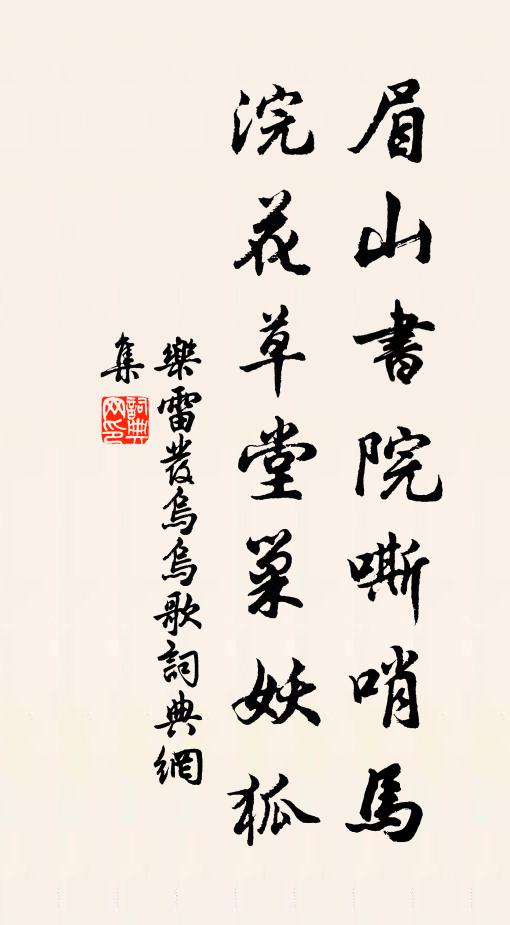 眉山書院嘶哨馬
浣花草堂巢妖狐
樂雷發烏烏歌詞典網
集
詞典网印